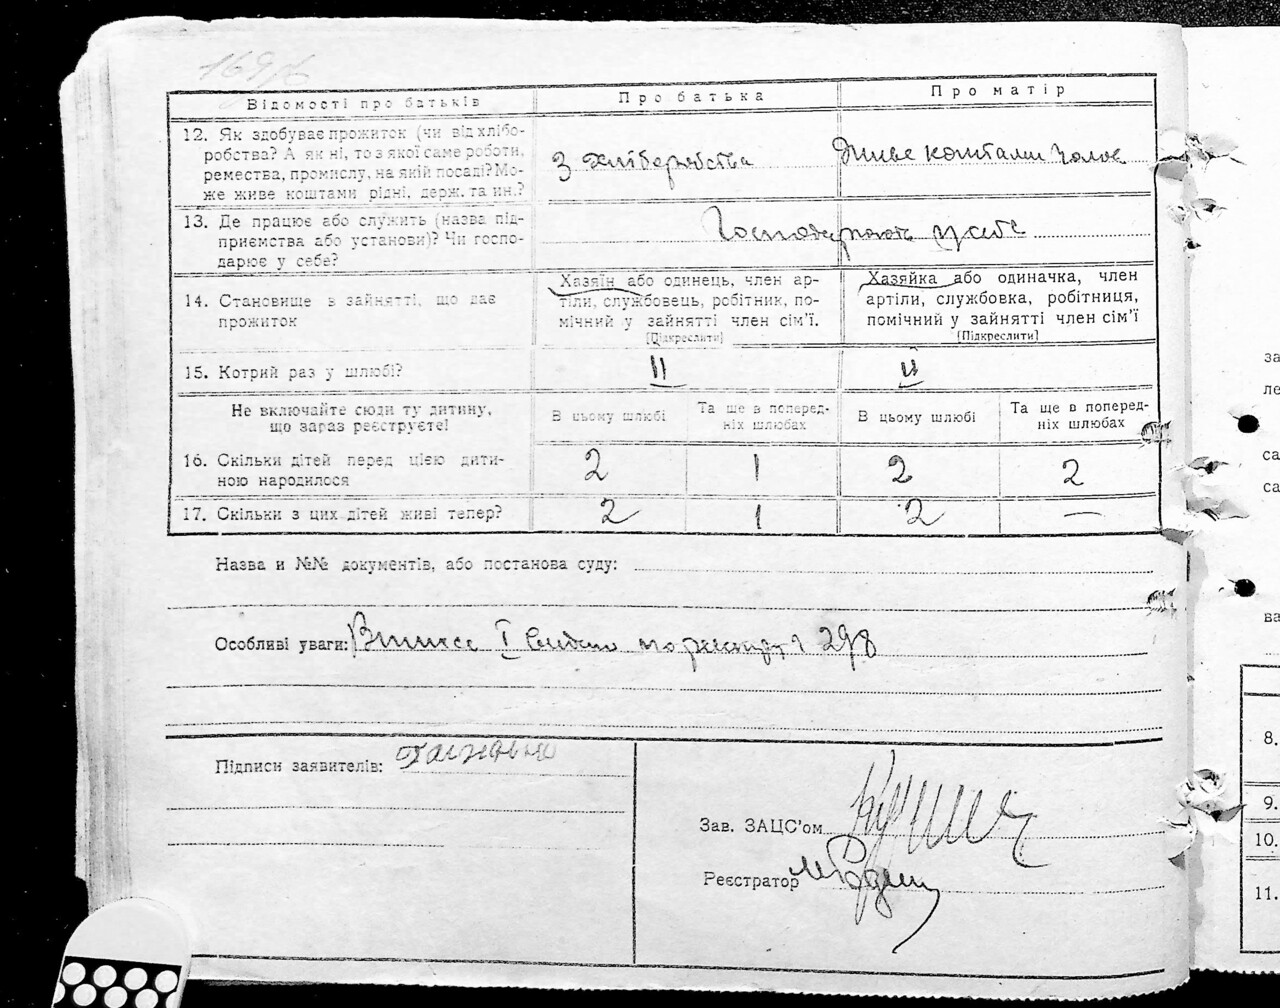 169/6
Відомості про батьків
Про батька
Про матір
12. Як здобуває прожиток (чи від хлібо-
робства? А як ні, то з якої саме роботи,
ремества, промислу, на якій посаді? Мо-
же живе коштами рідні, держ. та ин.?
З хліборобства
Живе коштами чолов
13. Де працює або служить (назва під-
приємства або установи)? Чи госпо-
дарює у себе?
Господарюють у себе
14. Становище в зайнятті, що дає
прожиток
Хазяїн або одинець, член ар-
тіли, службовець, робітник, по-
мічний у зайнятті член сім'ї.
[Підкреслити]
Хазяйка або одиначка, член
артіли, службовка, робітниця,
помічний у зайнятті член сім'ї
[Підкреслити]
15. Котрий раз у шлюбі?
II
II
Не включайте сюди ту дитину,
що зараз реєструєте!
В цьому шлюбі
Та ще в поперед-
ніх шлюбах
В цьому шлюбі
Та ще в поперед-
ніх шлюбах
16. Скільки дітей перед цією дити-
ною народилося
2 1 2 2
17. Скільки з цих дітей живі тепер?
2 1 2 —
Назва и №№ документів, або постанова суду:
Особливі уваги: I видано по 298
Підписи заявителів:
Зав. ЗАЦС'ом
Реєстратор
за
ле
са
са
ва
8.
9.
10.
11.